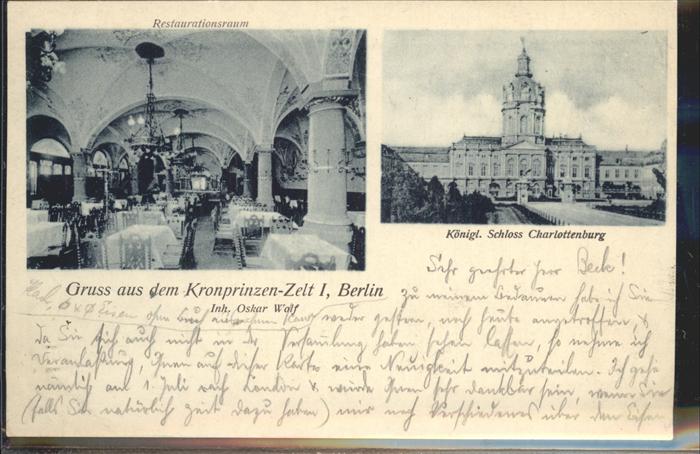 Restaurationsraum
Königl. Schloss Charlottenburg
Gruss aus dem Kronprinzen-Zelt I, Berlin
Inh. Oskar Wolf
Sehr geehrter Herr Beck!
Zu meinem Bedauern habe ich Sie
weder gestern, noch heute angetroffen, &
da Sie sich auch nicht in der Versammlung haben sehen lassen, so nehme ich
Veranlassung, Ihnen auf dieser Karte eine Neuigkeit mitzuteilen. Ich gehe
nämlich am 1. Juli nach London & würde Ihnen sehr dankbar sein, wenn Sie
(falls Sie natürlich Zeit dazu haben) mir noch Verschiedenes über den